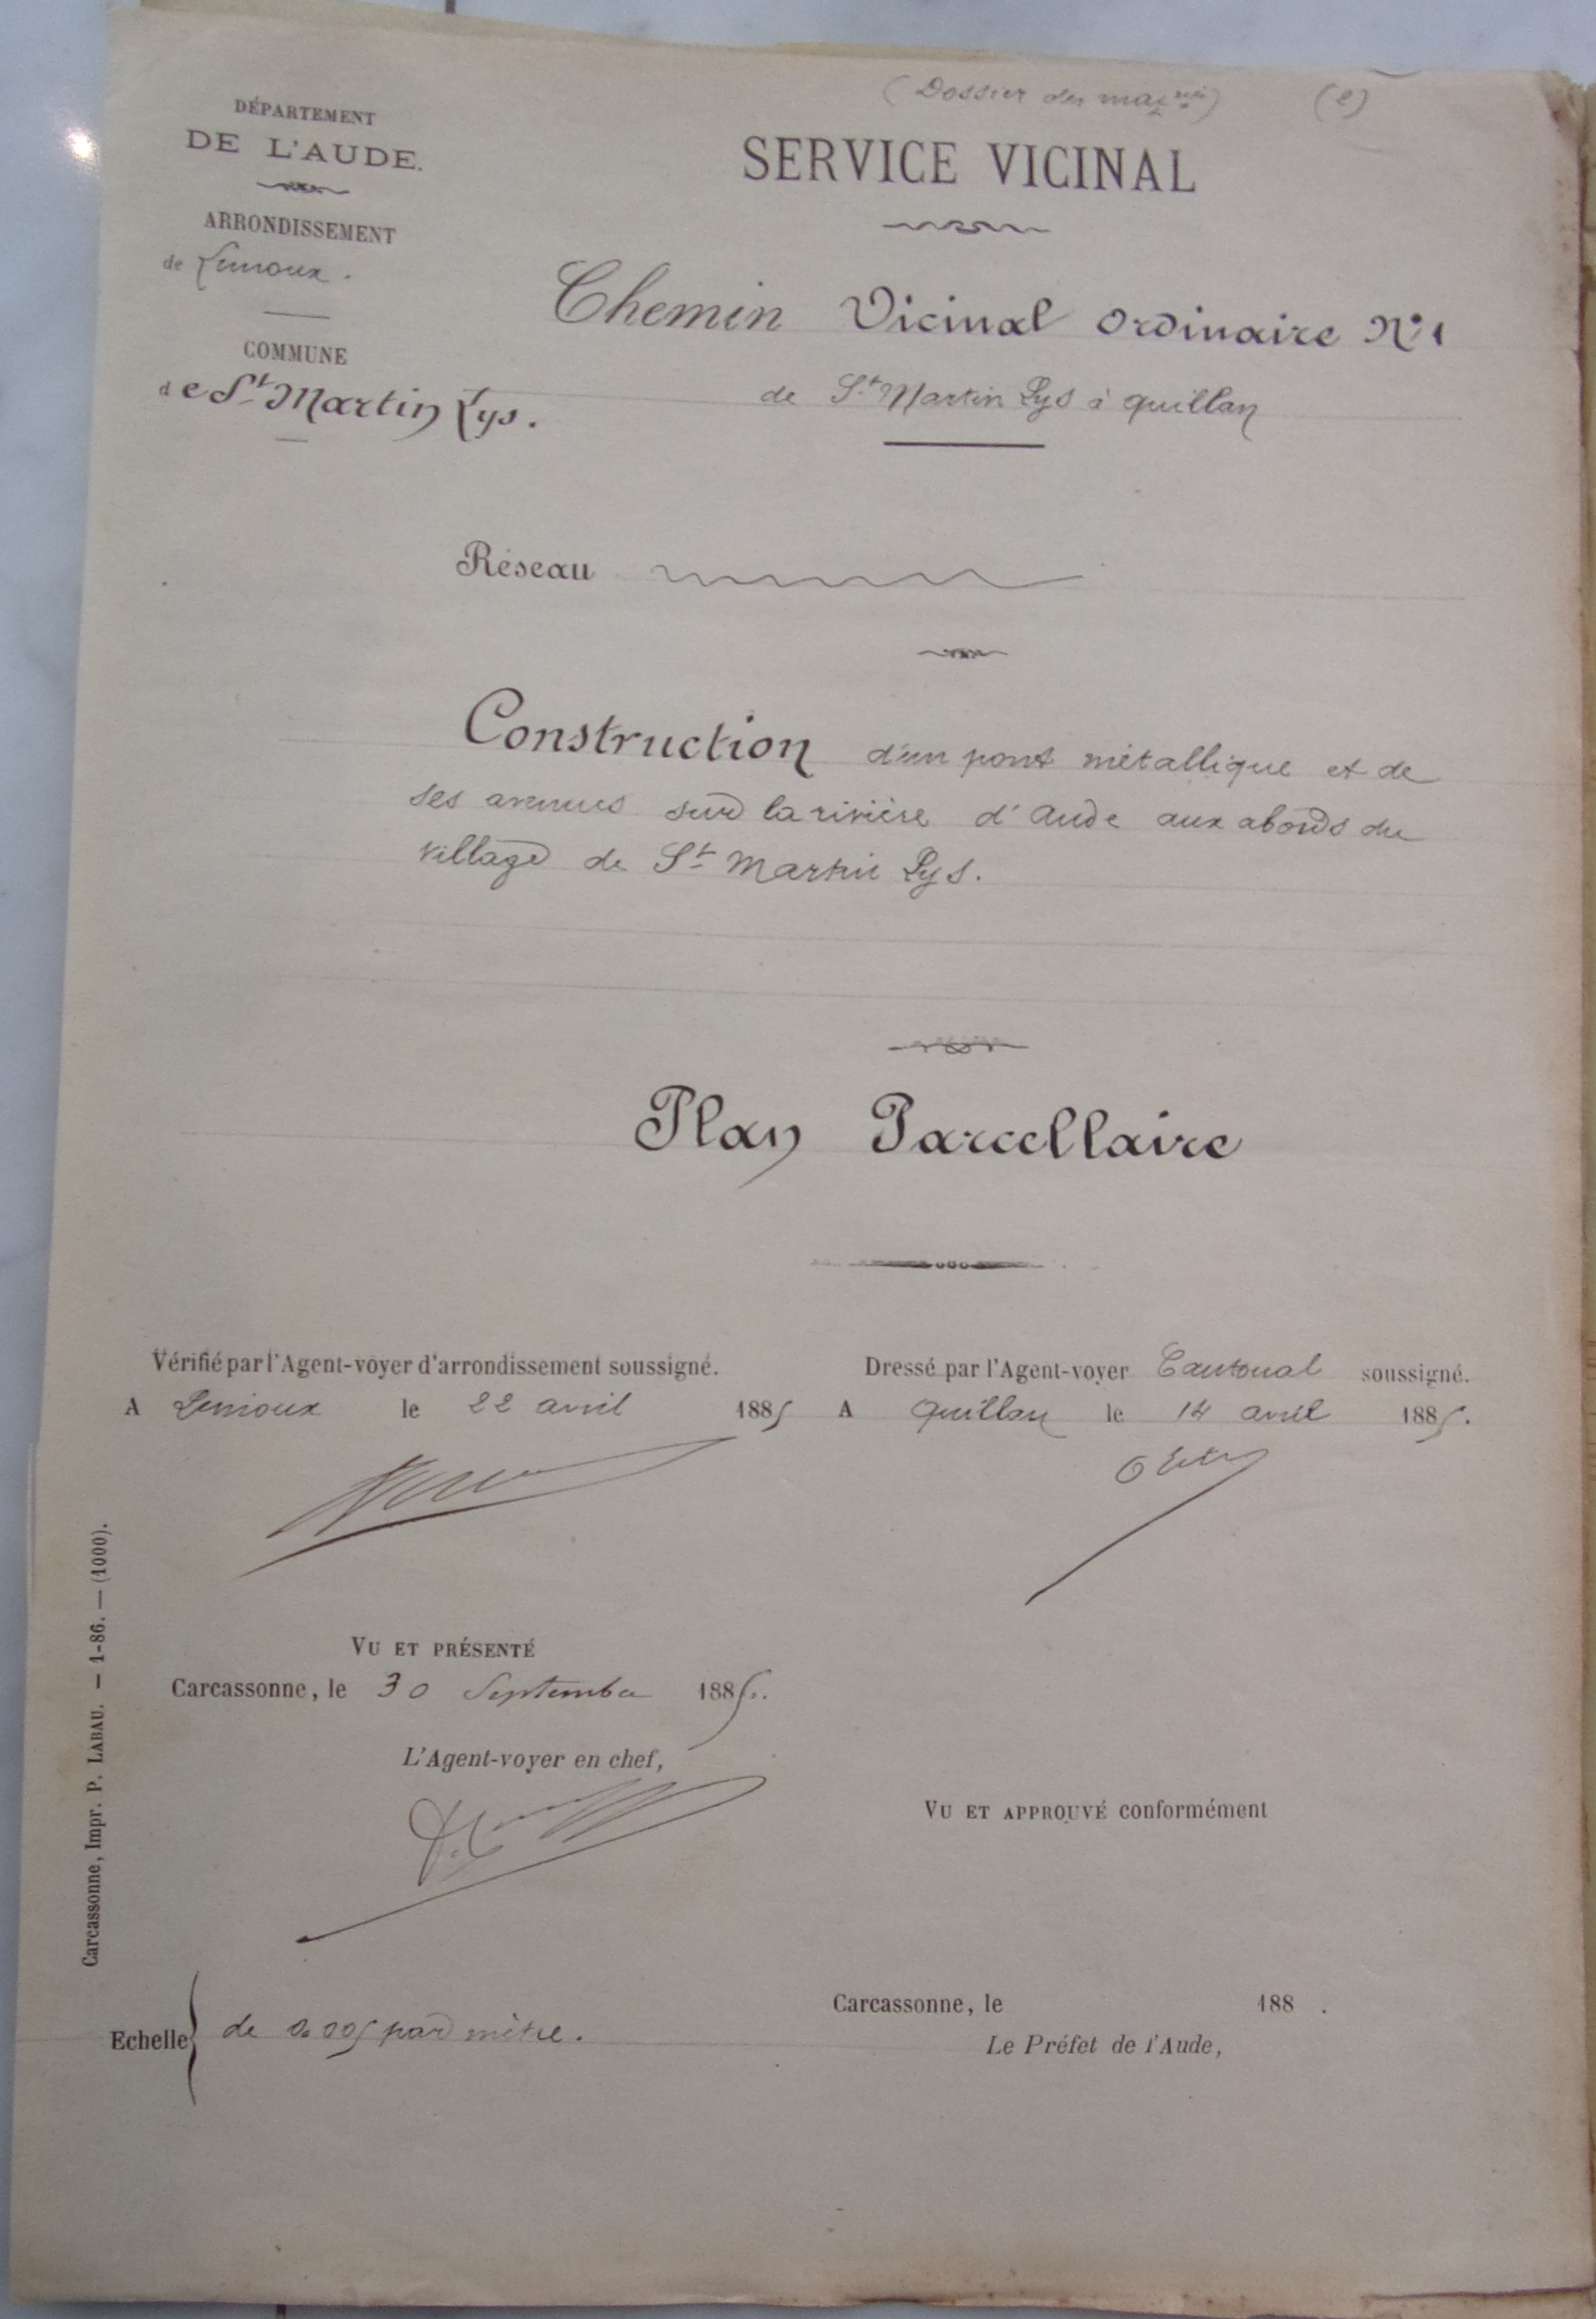 (Dossier des (2)
DÉPARTEMENT
DE L'AUDE.
ARRONDISSEMENT
de Limoux.
COMMUNE
de St Martin Lys.
SERVICE VICINAL
Chemin Vicinal Ordinaire No 1
de St Martin Lys à Quillan
Réseau
Construction d'un pont métallique et de
ses avenues sur la rivière d'Aude aux abords du
village de St Martin Lys.
Plan Parcellaire
Vérifié par l'Agent-voyer d'arrondissement soussigné.
A Limoux le 22 avril 1885
Dressé par l'Agent-voyer Cantonal soussigné.
A Quillan le 14 avril 1885.
VU ET PRÉSENTÉ
Carcassonne, le 30 Septembre 1885.
L'Agent-voyer en chef,
VU ET APPROUVÉ conformément
Carcassonne, le 188 .
Le Préfet de l'Aude,
Echelle de 0.005 par mètre.
Carcassonne, Impr. P. LABAU. — 1-86. — (1000).